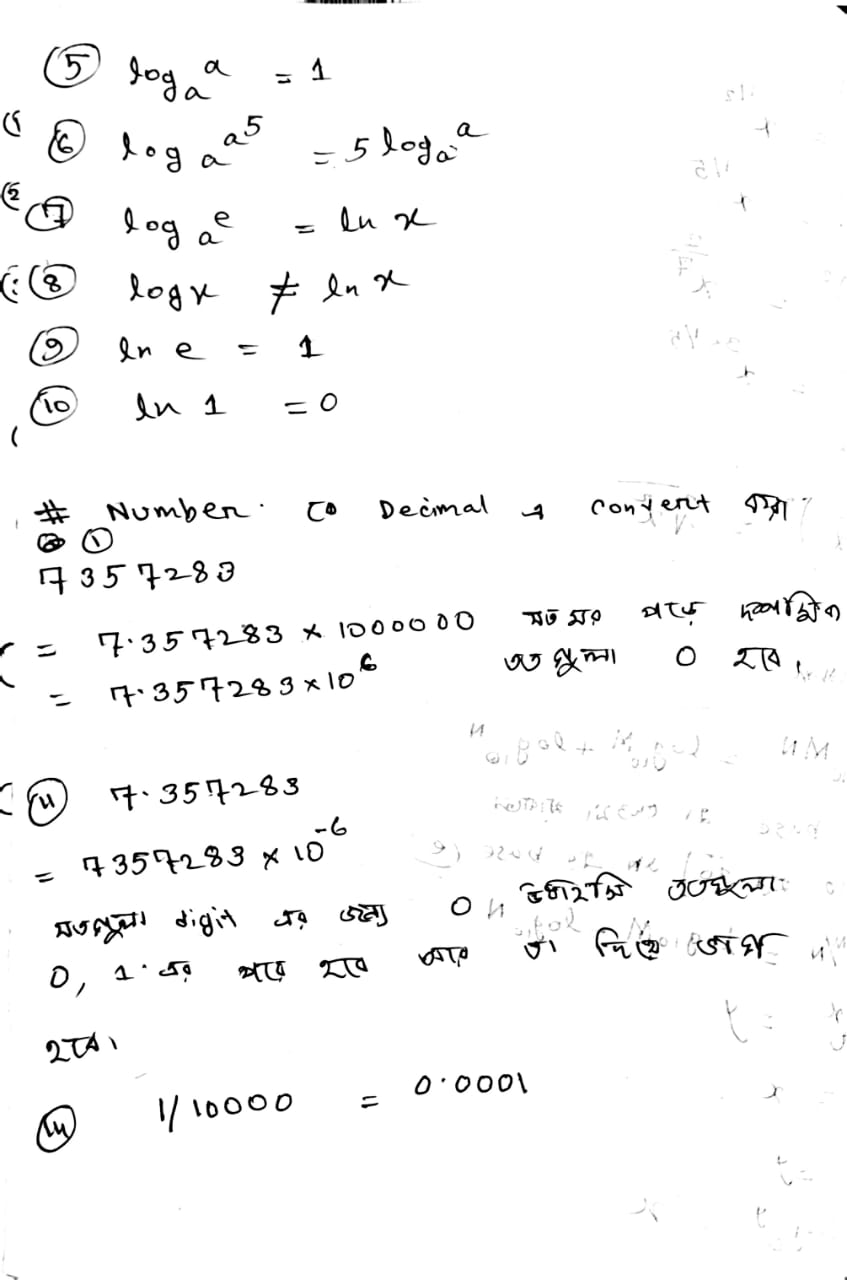 (5) logₐ a = 1
(6) logₐ a⁵ = 5 logₐ a
(7) logₐ e = ln x
(8) log x ≠ ln x
(9) ln e = 1
(10) ln 1 = 0
# Number to Decimal এ convert করা
(i)
7357283
= 7.357283 × 1000000 যত ঘর পরে দশমিক
= 7.357283 × 10⁶ তত গুলা 0 হবে।
(ii) 7.357283
= 7357283 × 10⁻⁶
যতগুলা digit এর জন্য 0 ততগুলা
0, 1 এর পরে হবে আর তা দিয়ে ভাগ
হবে।
(iii) 1/10000 = 0.0001